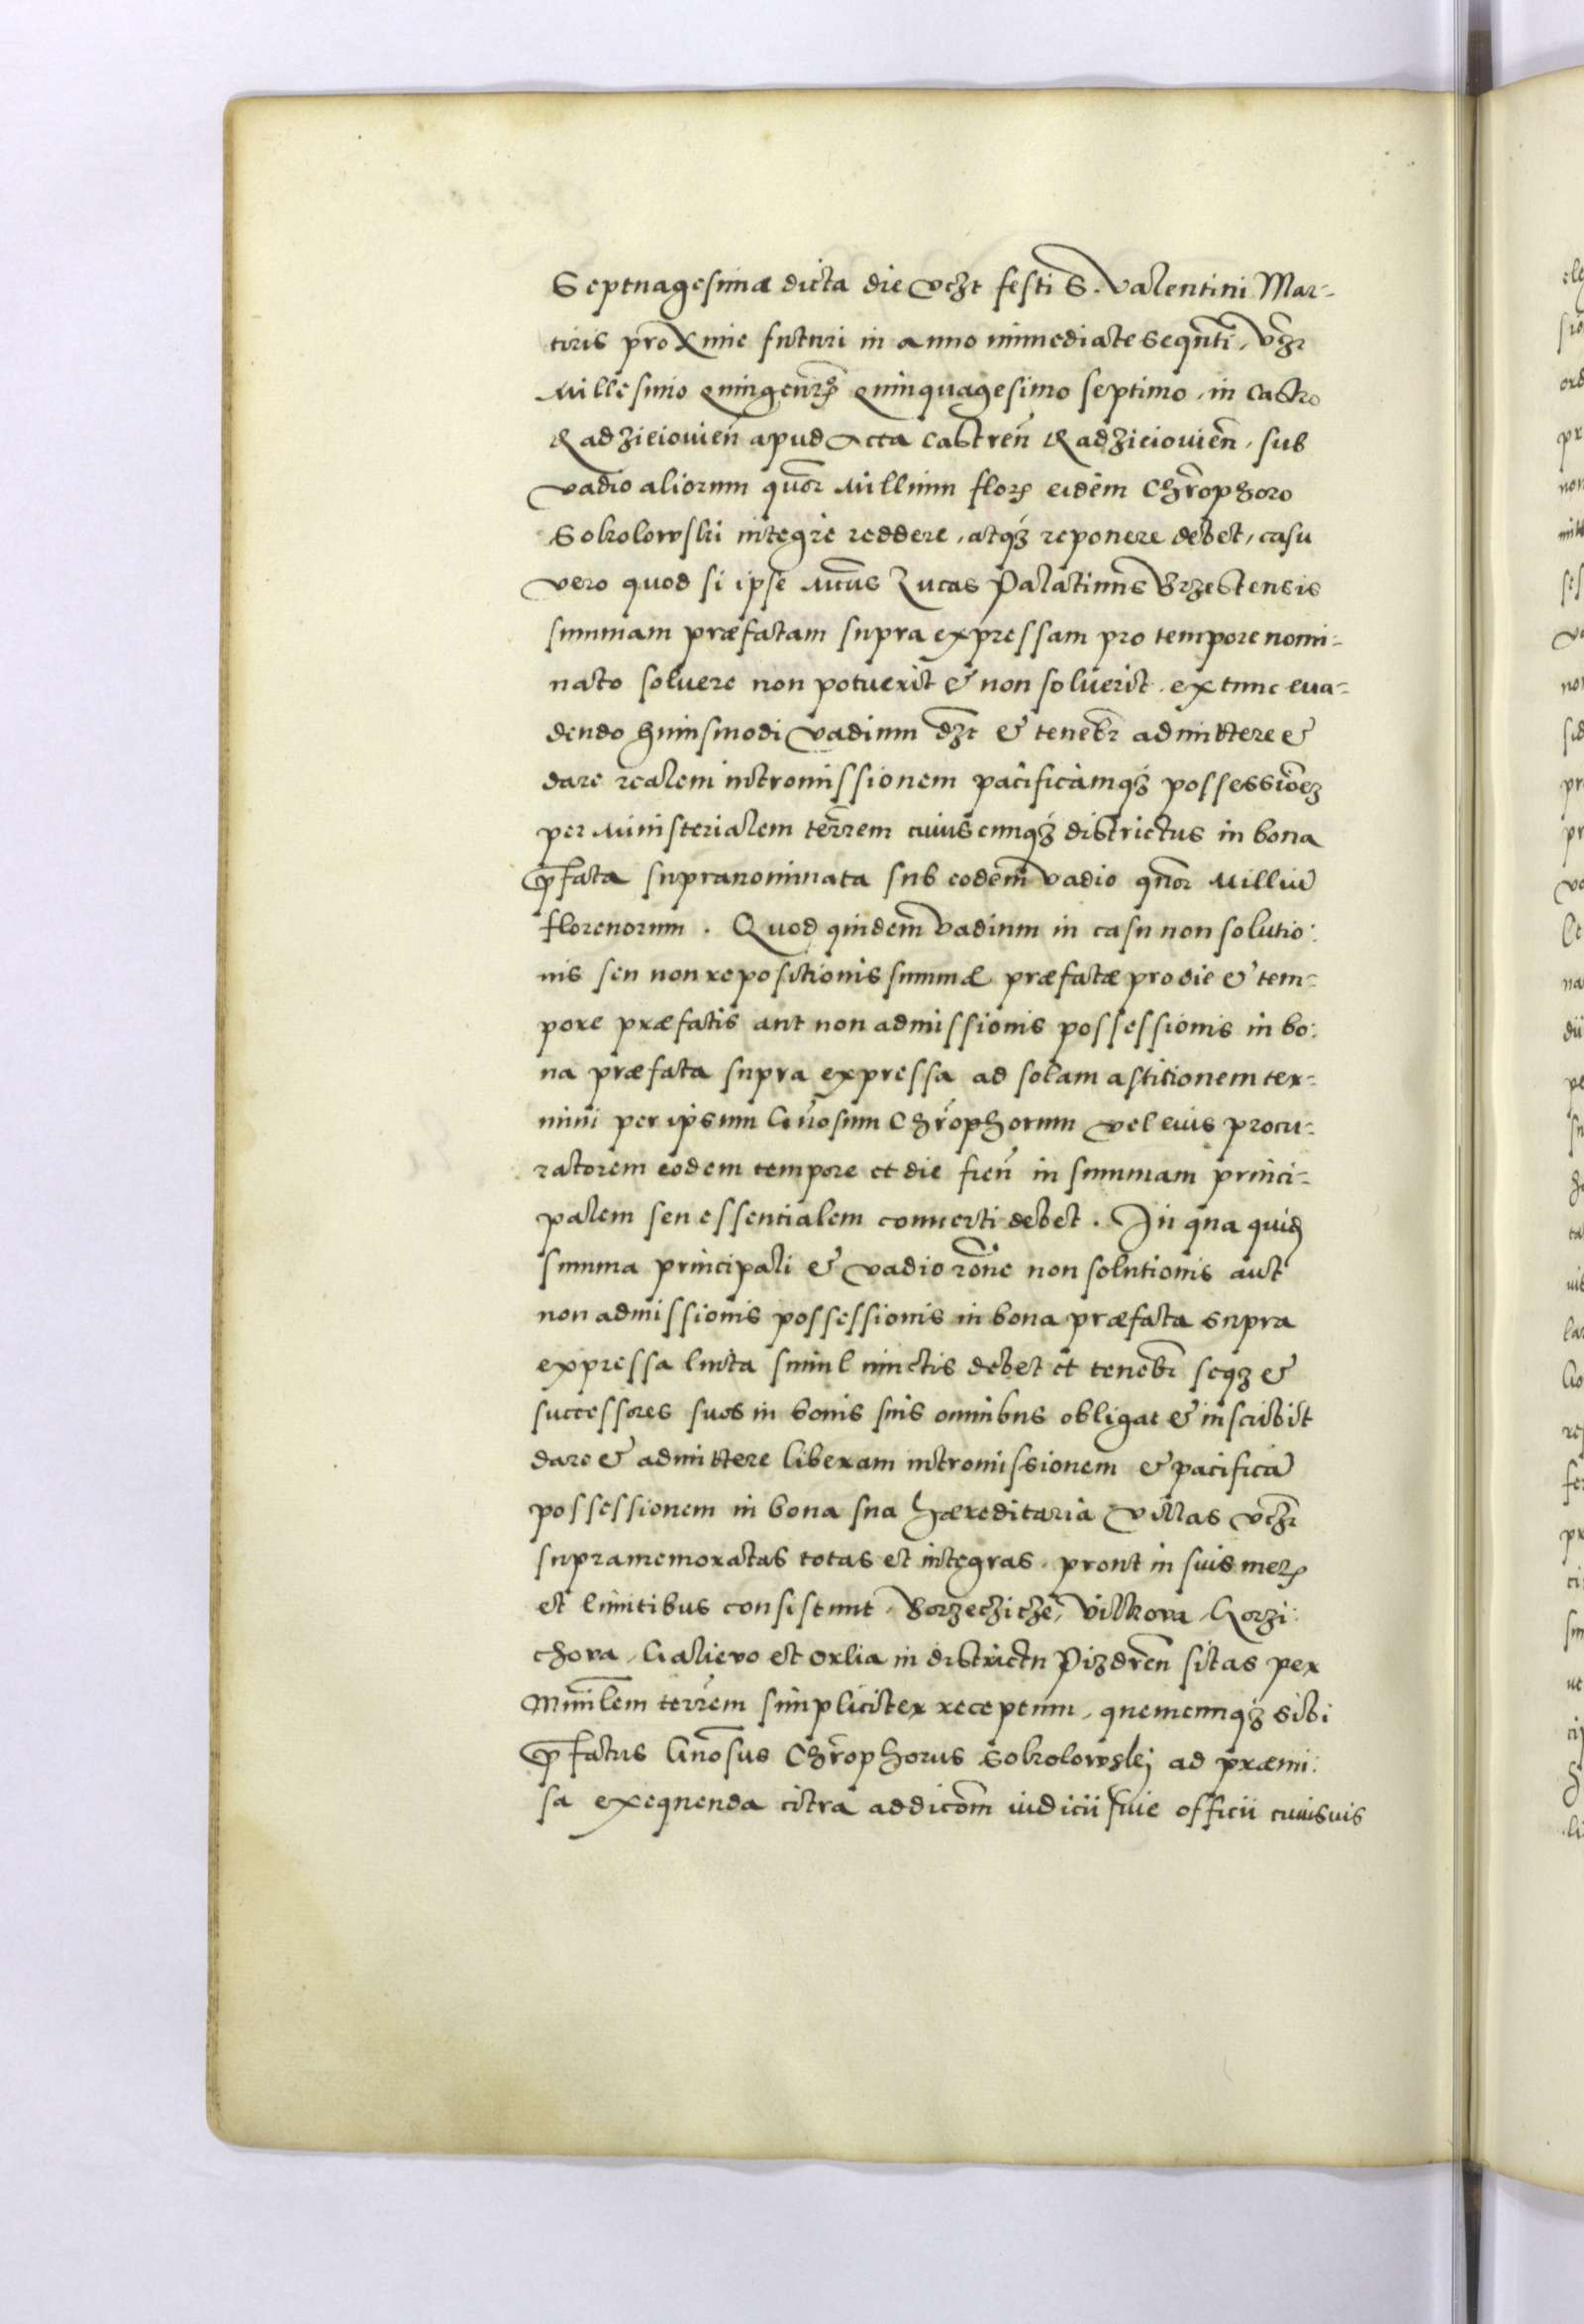 Septuagesima dicta die vczt festi S. Valentini Mar-
tiris proxime futuri in anno immediate sequnti, vczt
Millesimo quingenmo quinquagesimo septimo, in Castro
Radzieiouien apud Acta Castren Radzieiouien, sub
vadio aliorum quor Millium flor eidem Chrophoro
Sokolowski integre reddere, atqz reponere debet, casu
vero quod si ipse Mcus Lucas Palatinus Brzestensis
summam præfatam supra expressam pro tempore nomi-
nato soluere non potuerit & non soluerit. ex tunc eua-
dendo huiusmodi vadium dzt & tenebr admittere &
dare realem intromissionem pacificamqz possessioez
per Ministerialem terrem cuiuscunqz districtus in bona
pfata supranominata sub eodem vadio quor Milliu
florenorum. Quod quidem vadium in casu non solutio:
nis seu non repositionis summæ præfatæ pro die & tem-
pore præfatis aut non admissionis possessionis in bo:
na præfata supra expressa ad solam astitionem ter-
mini per ipsum Gnosum Chrophorum vel eius procu-
ratorem eodem tempore et die fien in summam princi-
palem seu essentialem conuerti debet. In qua quid
summa principali & vadio rone non solutionis aut
non admissionis possessionis in bona præfata supra
expressa lucta simul iunctis debet et tenebr seqz &
successores suos in bonis suis omnibus obligat & inscribit
dare & admittere liberam intromissionem & pacifica
possessionem in bona sua hæreditaria villas vczt
supramemoratas totas et integras. prout in suis mer
et limitibus consistunt. Borzecziche, Vilkova, Gorzi:
chova, Galievo et Orlia in districtu Pizdren sitas per
Mnilem terrem simpliciter receptum, quemcunqz sibi
pfatus Gnosus Chrophorus Sokolowskj ad præmi:
sa exequenda citra addicom iudicii siue officii cuiusuis